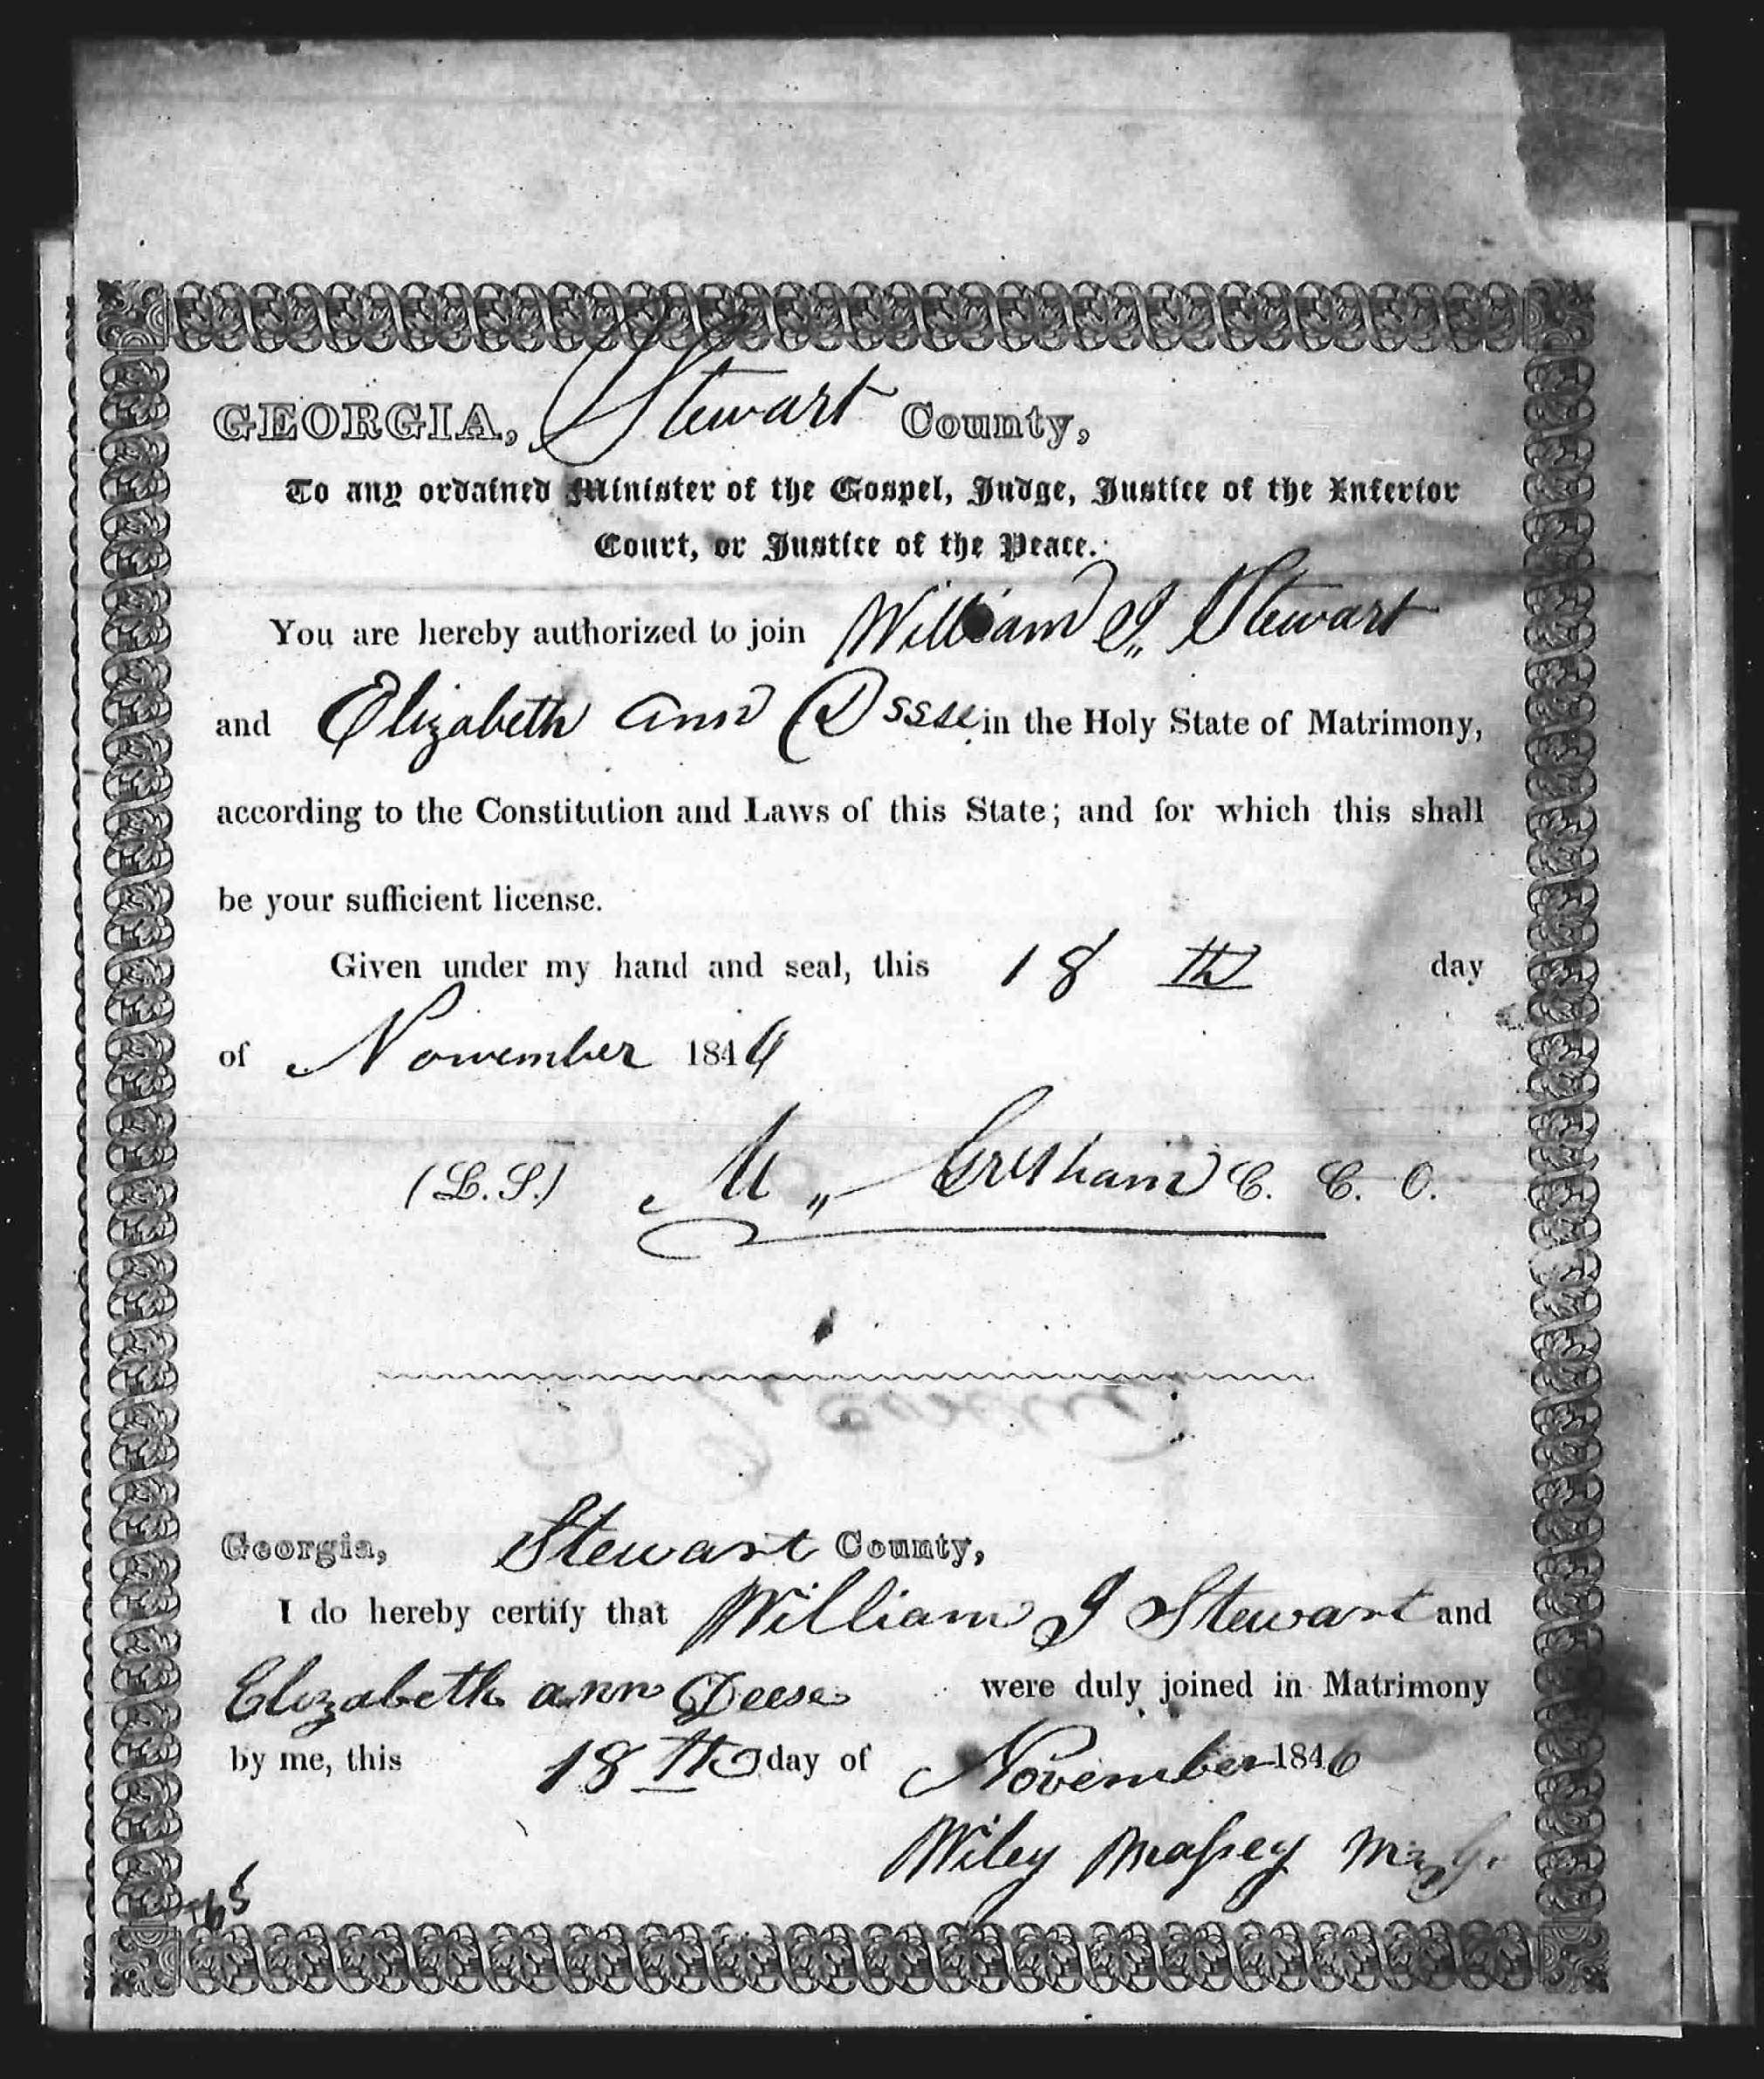 GEORGIA, Stewart County,
To any ordained Minister of the Gospel, Judge, Justice of the Inferior
Court, or Justice of the Peace.
You are hereby authorized to join William J. Stewart
and Elizabeth ann in the Holy State of Matrimony,
according to the Constitution and Laws of this State; and for which this shall
be your sufficient license.
Given under my hand and seal, this 18 th day
of November 184
(L.S.) M Gresham C. C. O.
Georgia, Stewart County,
I do hereby certify that William J Stewart and
Elizabeth ann Deese were duly joined in Matrimony
by me, this 18 th day of November 1846
Wiley Massey M. G.